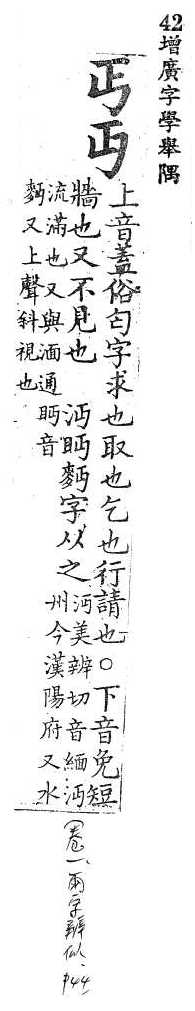 42 增廣字學舉隅
丐丏
上音蓋俗匄字求也取也乞也行請也○下音免短
牆也又不見也 沔眄麪字从之
沔美辨切音緬沔
州今漢陽府又水
流滿也又與湎通眄音
麪又上聲斜視也
(卷一、兩字辨似、P44)